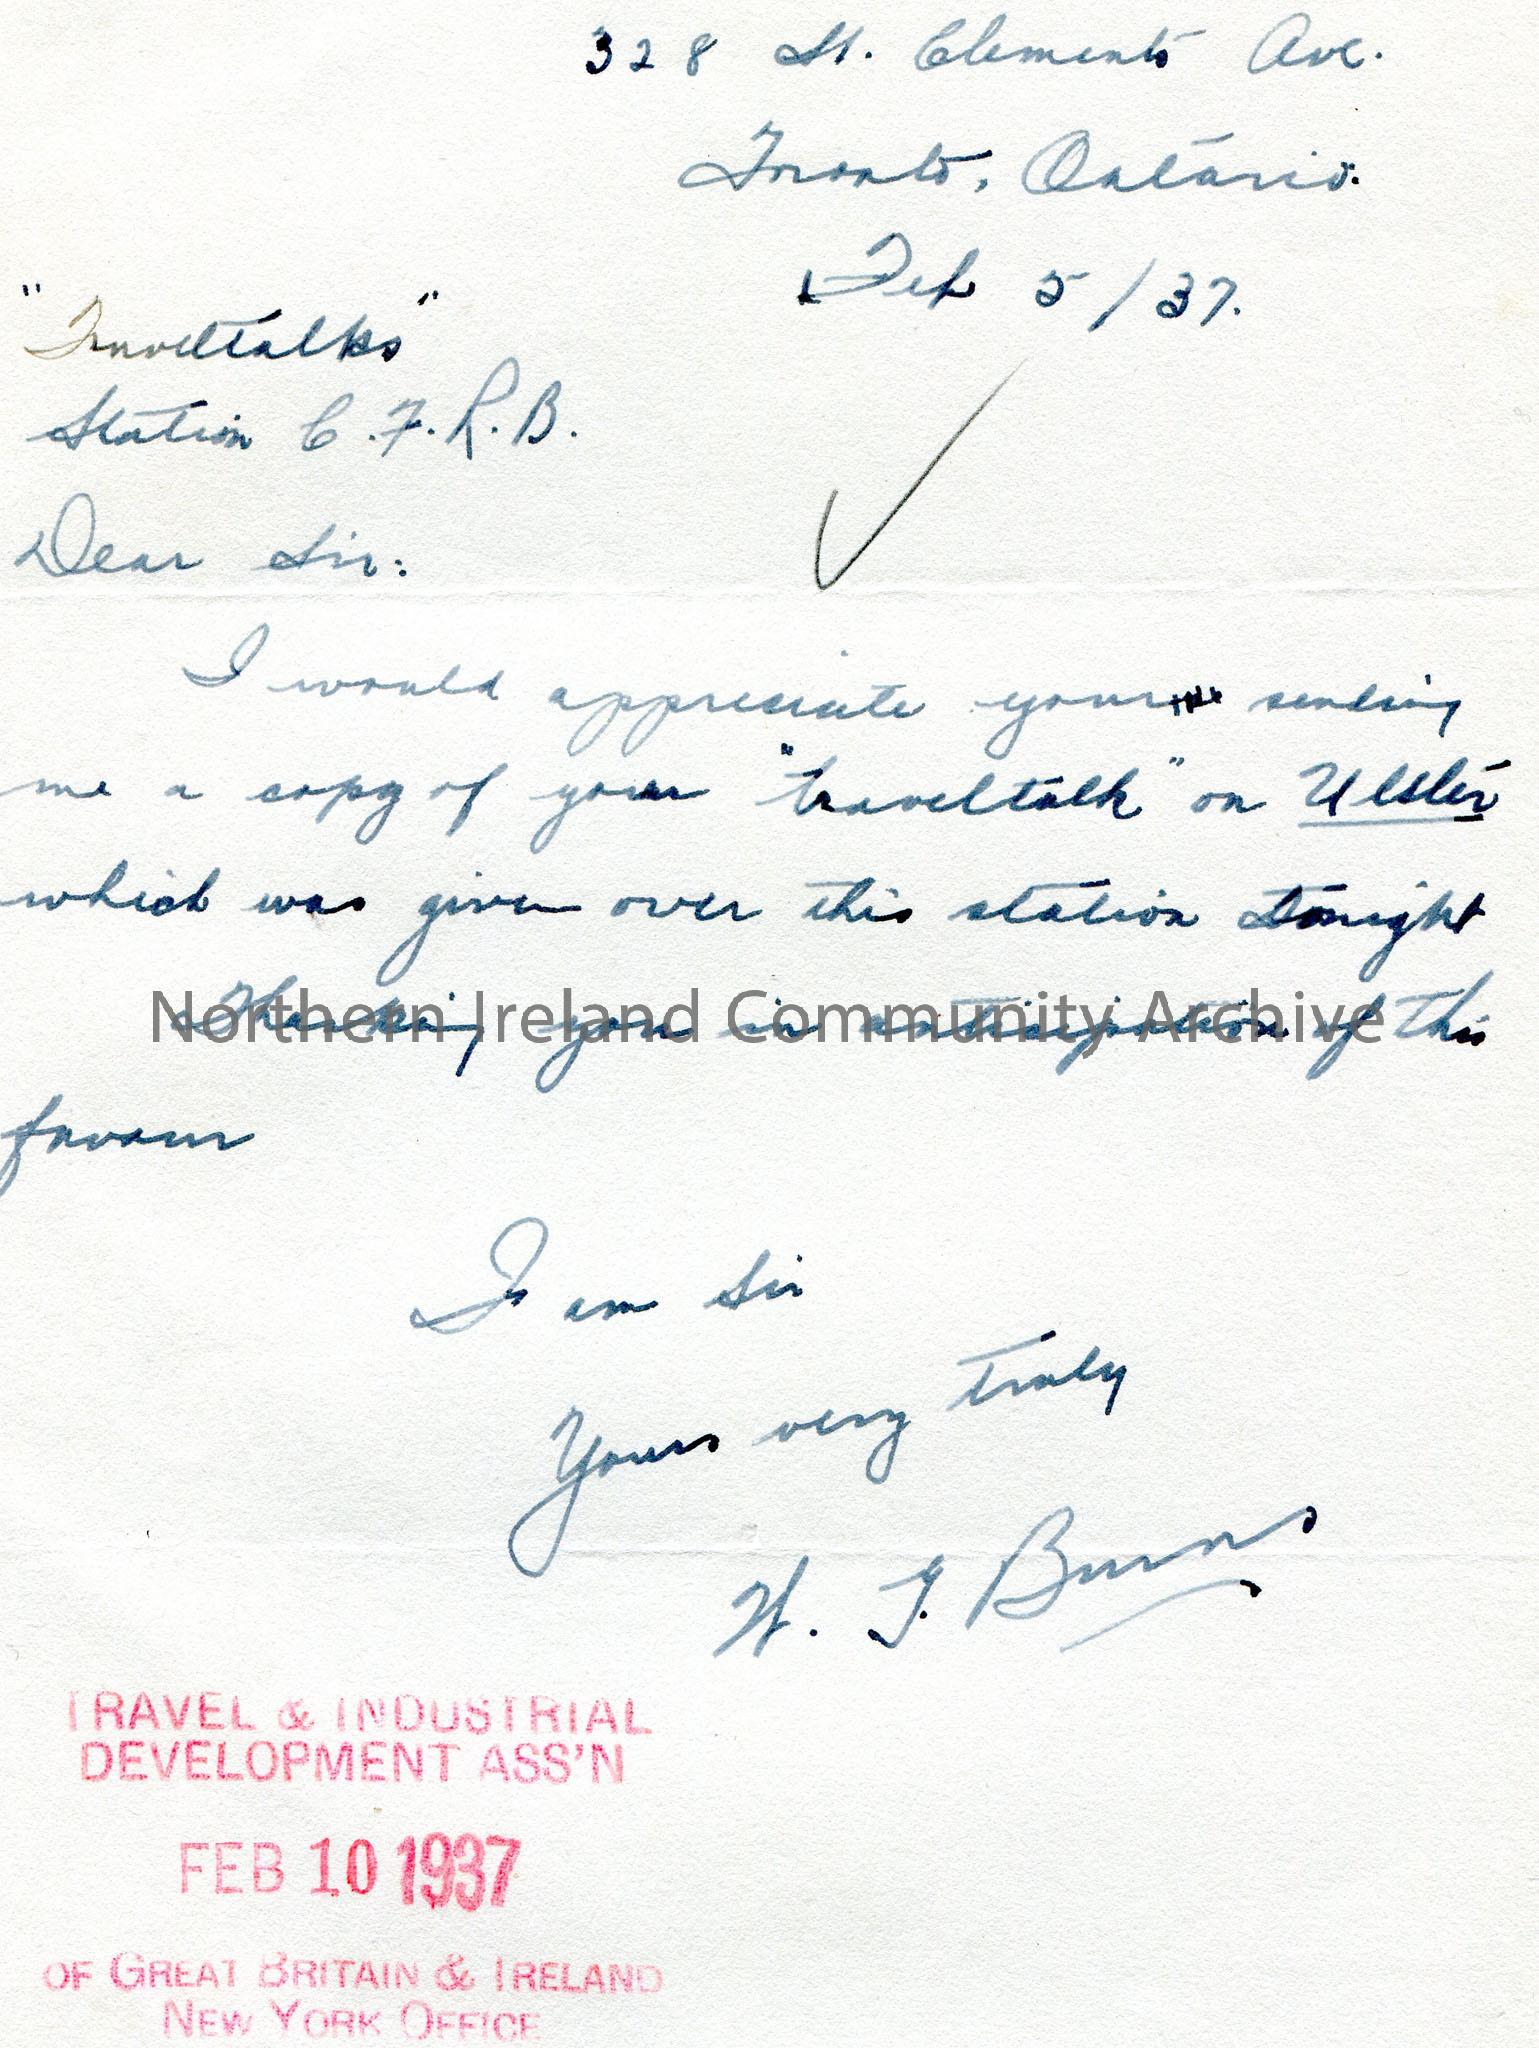 328 St. Clements Ave.
Toronto, Ontario.
Feb 5/37.
"Traveltalks"
Station C.F.R.B.
Dear Sir:
I would appreciate your sending
me a copy of your "traveltalk" on Ulster
which was given over this station tonight
Thanking you in anticipation of this
Northern Ireland Community Archive
favour
I am Sir
Yours very truly
W. J. Burns
TRAVEL & INDUSTRIAL
DEVELOPMENT ASS'N
FEB 10 1937
OF GREAT BRITAIN & IRELAND
NEW YORK OFFICE